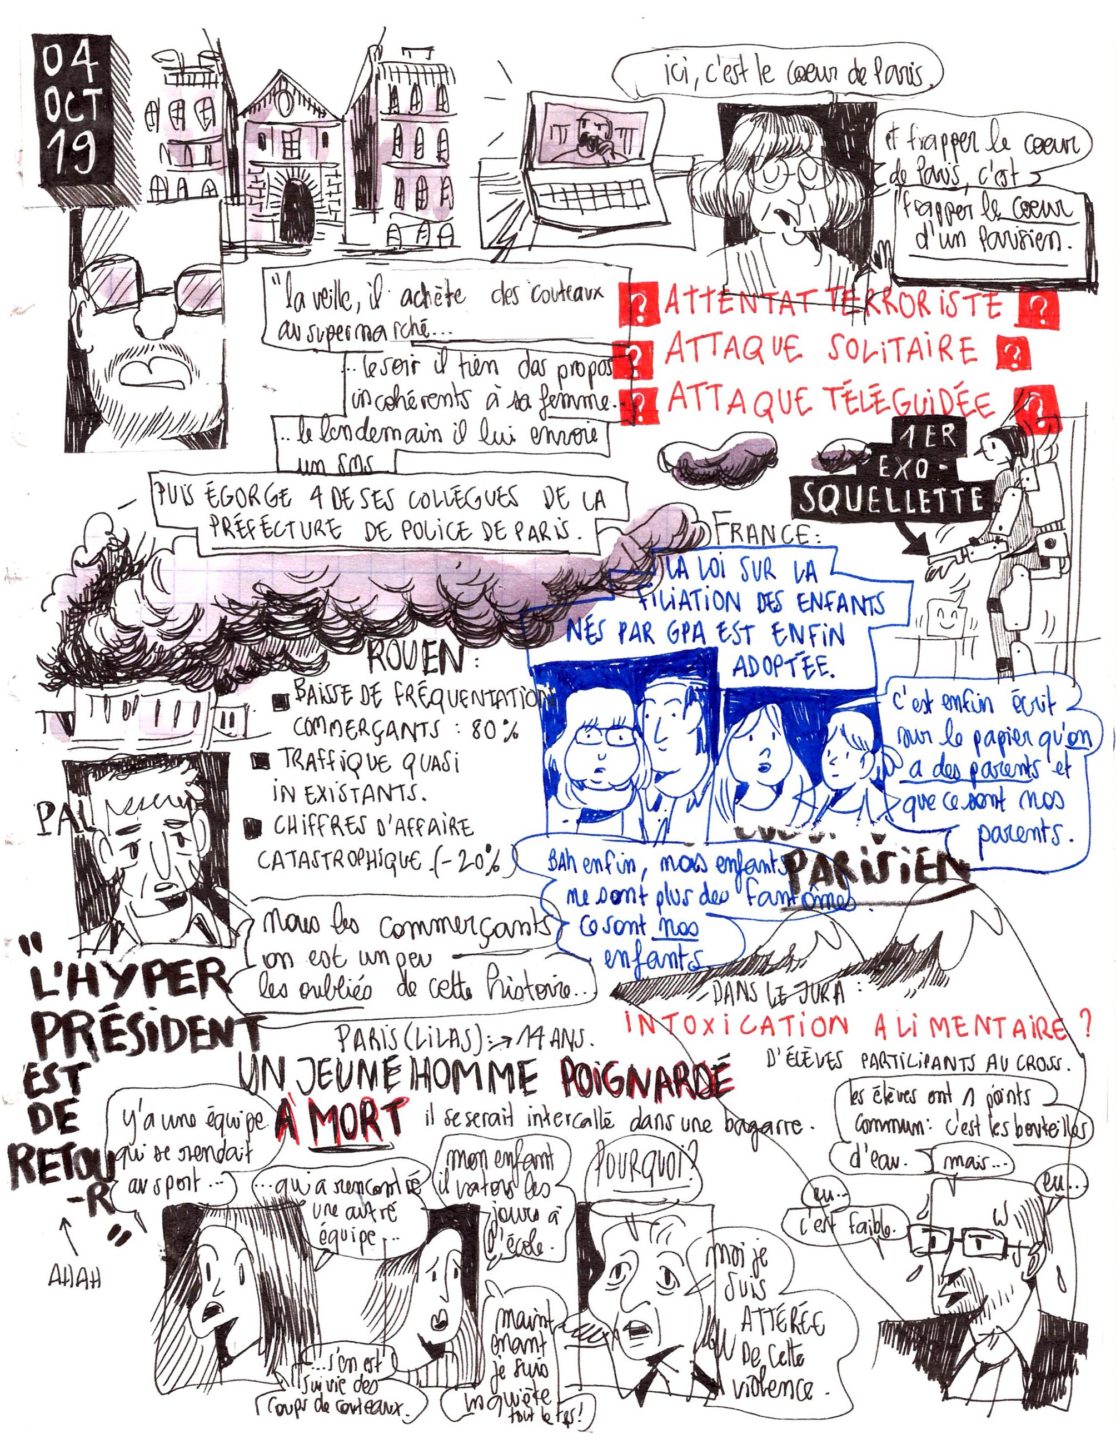 04
OCT
19
ici, c'est le coeur de Paris.
et frapper le coeur
de Paris, c'est
frapper le coeur
d'un parisien.
"la veille, il achète des couteaux
au supermarché...
...le soir il tien das propos
incohérents à sa femme...
...le lendemain il lui envoie
un SMS
PUIS ÉGORGE 4 DE SES COLLÈGUES DE LA
PRÉFÉCTURE DE POLICE DE PARIS.
? ATTENTAT TERRORISTE ?
? ATTAQUE SOLITAIRE ?
? ATTAQUE TÉLÉGUIDÉE ?
1ER
EXO-
SQUELLETTE
FRANCE:
LA LOI SUR LA
FILIATION DES ENFANTS
NÉS PAR GPA EST ENFIN
ADOPTÉE.
c'est enfin écrit
sur le papier qu'on
a des parents et
que ce sont nos
parents.
Bah enfin, nos enfants
ne sont plus des fantômes.
ce sont nos
enfants
PARISIEN
ROUEN:
BAISSE DE FRÉQUENTATION
COMMERÇANTS : 80%
TRAFFIQUE QUASI
INEXISTANTS.
CHIFFRES D'AFFAIRE
CATASTROPHIQUE. (-20%)
PAL
Nous les commerçants
on est un peu
les oubliés de cette histoire...
"L'HYPER
PRÉSIDENT
EST
DE
RETOU
-R"
AHAH
DANS LE JURA :
INTOXICATION ALIMENTAIRE ?
D'ÉLÈVES PARTICIPANTS AU CROSS.
les élèves ont 1 points
commun: c'est les bouteilles
d'eau.
mais...
eu...
eu...
c'est faible.
PARIS (LILAS) : → 14 ANS.
UN JEUNE HOMME POIGNARDÉ
À MORT il se serait intercallé dans une bagarre.
y'a une équipe
qui se rendait
au sport...
...qui a rencontré
une autre
équipe...
...s'en est
suivie des
coups de couteaux.
mon enfant
il va tous les
jours à
l'école.
maint
enant
je suis
inquiète
tout le tps!
POURQUOI?
moi je
SUIS
ATTÉRÉE
DE cette
violence.